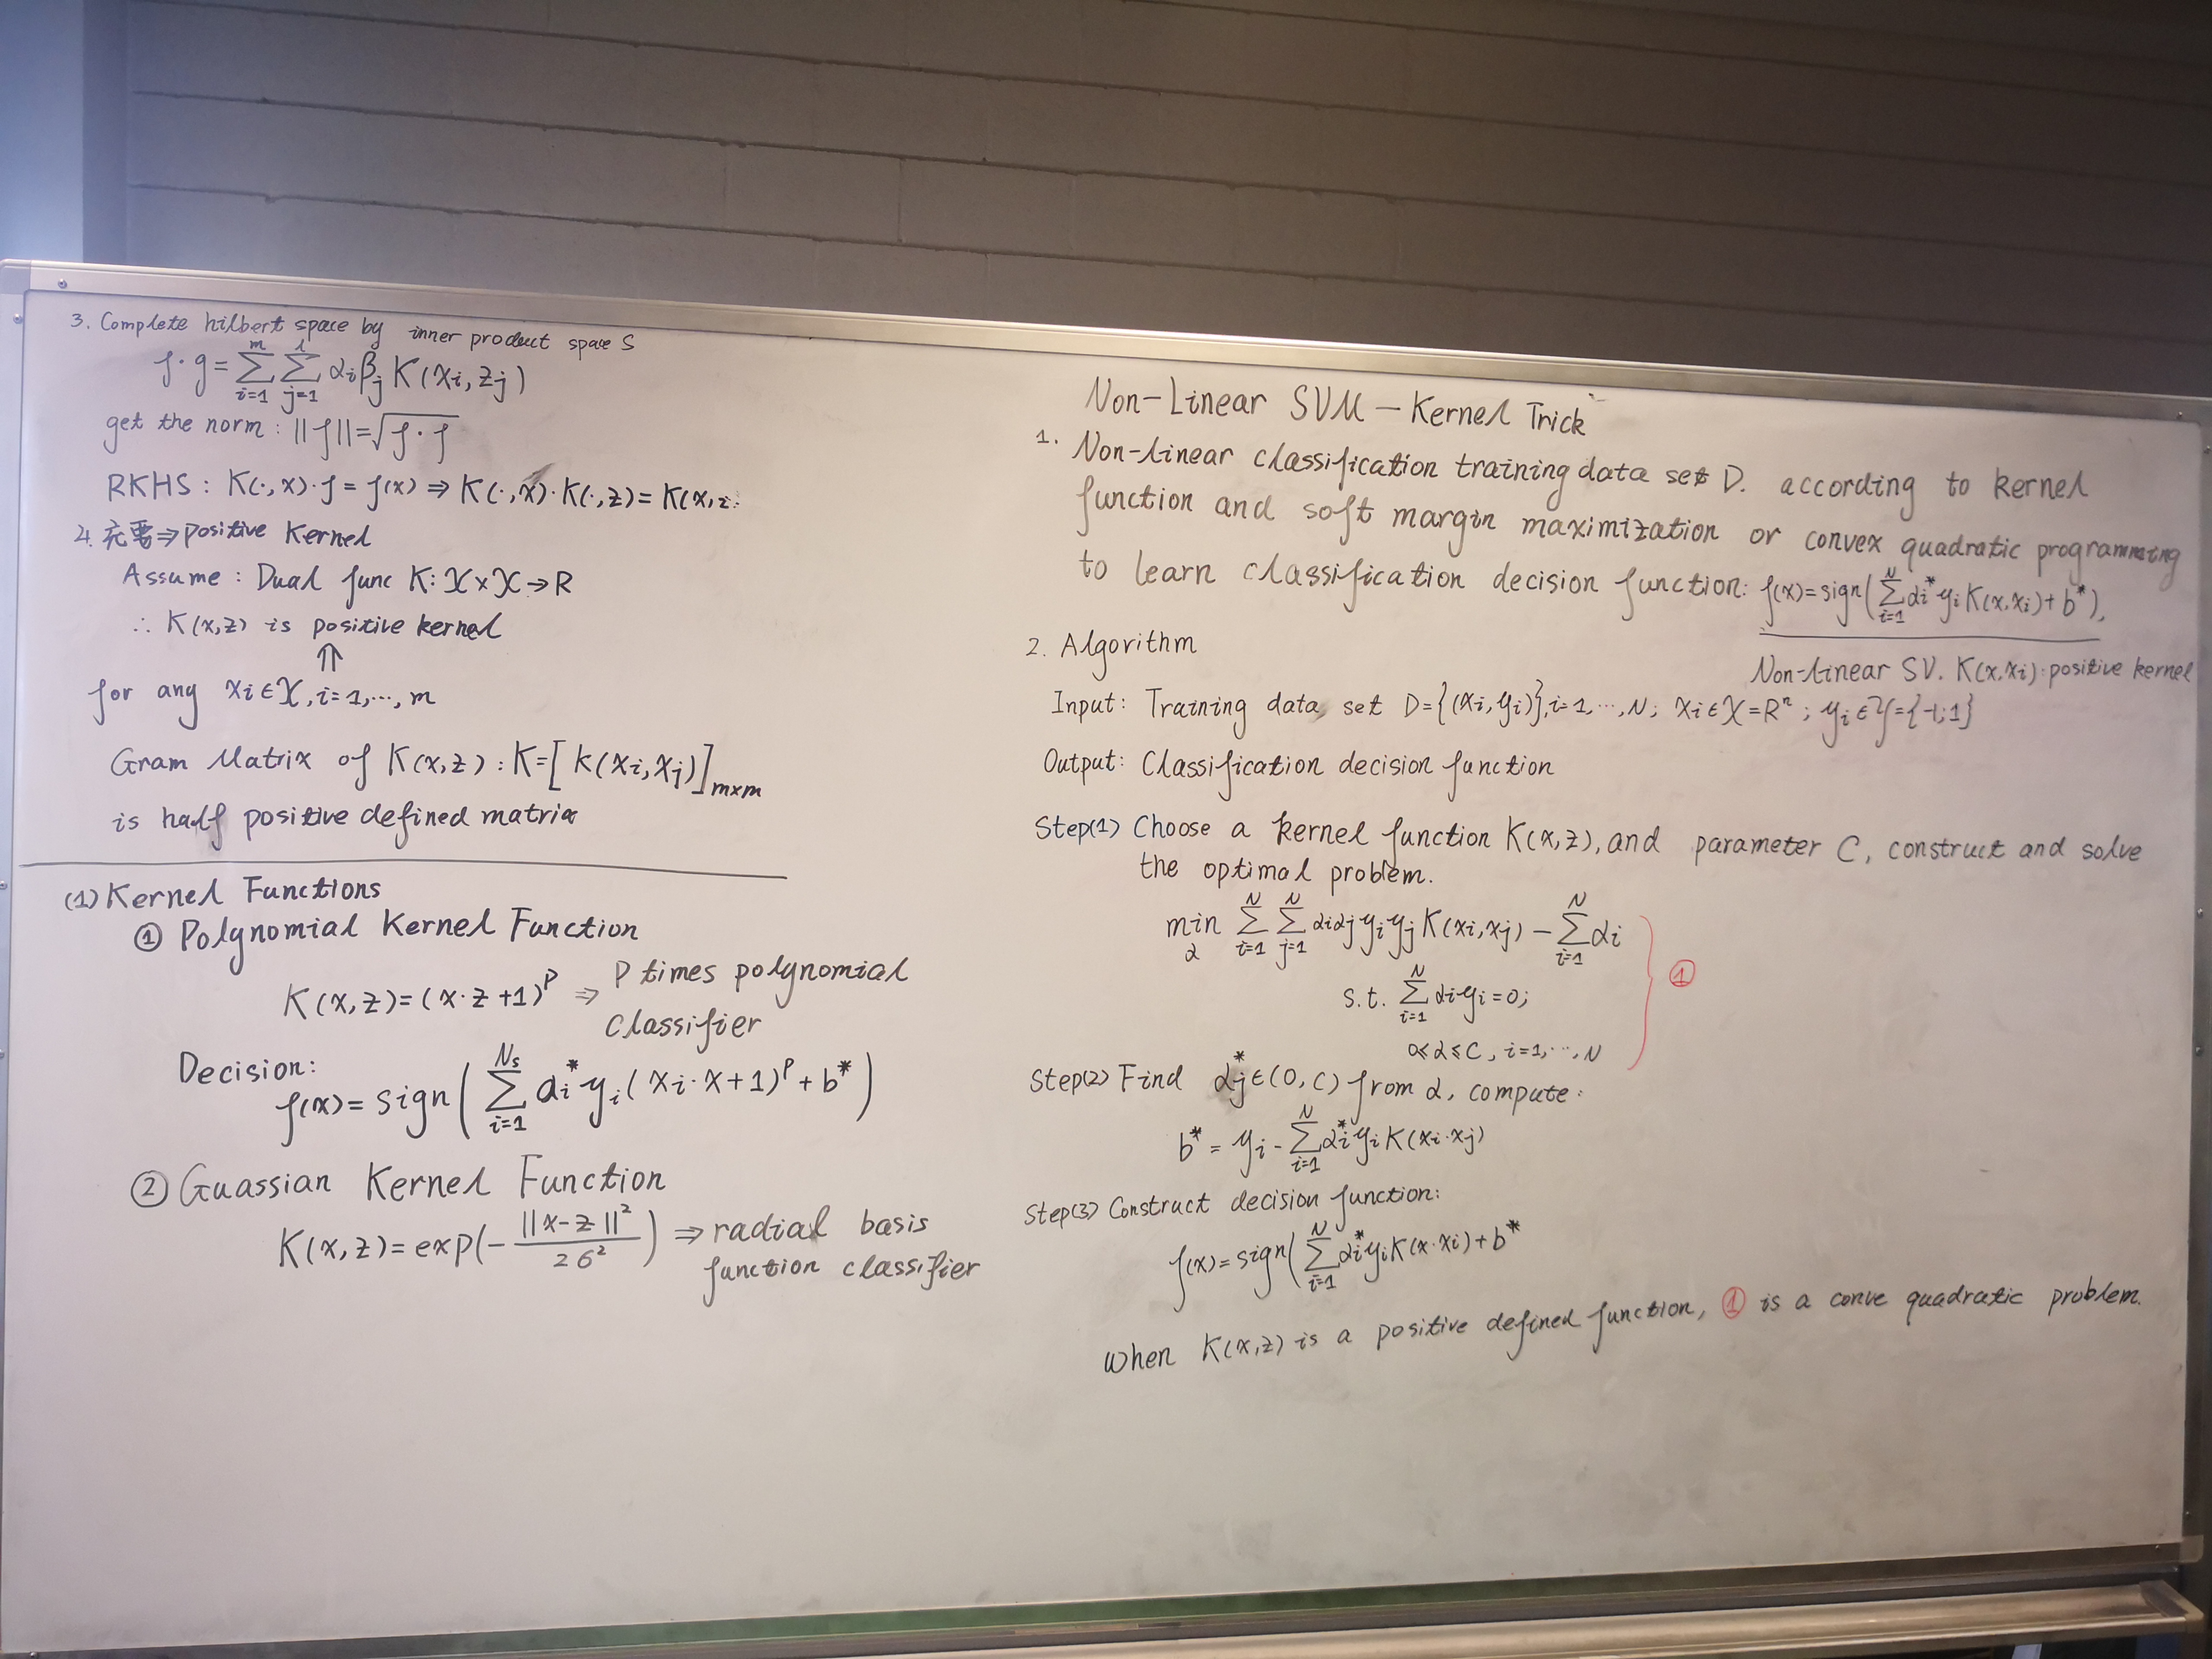 3. Complete hilbert space by inner product space S
f·g=∑_{i=1}^{m}∑_{j=1}^{l}αiβjK(xi,zj)
get the norm: ||f||=√f·f
RKHS: K(·,x)·f=f(x)⇒K(·,x)·K(·,z)=K(x,z
4. 充要⇒positive Kernel
Assume: Dual func K:X×X→R
∴ K(x,z) is positive kernel
⇑
for any xi∈X, i=1,···,m
Gram Matrix of K(x,z): K=[k(xi,xj)]m×m
is half positive defined matrix
(1) Kernel Functions
① Polynomial Kernel Function
K(x,z)=(x·z+1)^p ⇒ P times polynomial
classifier
Decision:
f(x)=sign(∑_{i=1}^{Ns}αi*yi(xi·x+1)^p+b*)
② Guassian Kernel Function
K(x,z)=exp(-||x-z||²/2σ²) ⇒ radial basis
function classifier
Non-Linear SVM — Kernel Trick
1. Non-linear classification training data set D. according to kernel
function and soft margin maximization or convex quadratic programming
to learn classification decision function: f(x)=sign(∑_{i=1}^{N}αi*yiK(x,xi)+b*),
Non-linear SV. K(x,xi): positive kernel
2. Algorithm
Input: Training data set D={(xi,yi)},i=1,···,N; xi∈X=R^n; yi∈Y={-1;1}
Output: Classification decision function
Step(1) Choose a kernel function K(x,z), and parameter C, construct and solve
the optimal problem.
min_α ∑_{i=1}^{N}∑_{j=1}^{N}αiαjyiyjK(xi,xj)-∑_{i=1}^{N}αi
s.t. ∑_{i=1}^{N}αiyi=0;
①
0≤α≤C, i=1,···,N
Step(2) Find αj*∈(0,C) from α, compute:
b*=yi-∑_{i=1}^{N}αi*yiK(xi·xj)
Step(3) Construct decision function:
f(x)=sign(∑_{i=1}^{N}αi*yiK(x·xi)+b*
When K(x,z) is a positive defined function, ① is a conve quadratic problem.